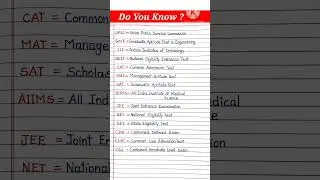 CAT = Common
MAT = Manage
SAT = Scholas
AIIMS = All Ind
JEE = Joint E
NET = National
Do You Know ?
UPSC = Union Public Service Commission
GATE = Graduate Aptitude Test in Engineering
IIT = Indian Institutes of Technology
NEET = National Eligibility Entrance Test
CAT = Common Admission Test
MAT = Management Aptitude Test
SAT = Scholastic Aptitude Test
AIIMS = All India Institute of Medical
Science
JEE = Joint Entrance Examination
NET = National Eligibility Test
SET = State Eligibility Test
= Combined Defence Exam
CLAT = Common Law Admission Test
CGL = Combined Graduate Level Exam
t
edical